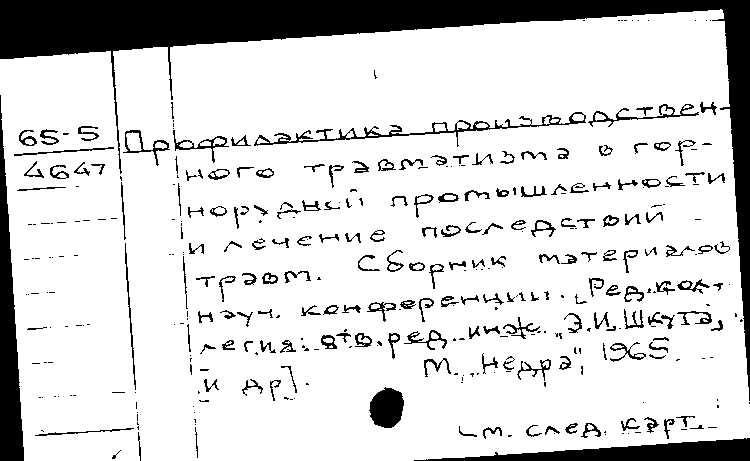 65-5
4647
Профилактика производствен-
ного травматизма в гор-
норудной промышленности
и лечение последствий
травм. Сборник материалов
науч. конференции. [Ред. кол-
легия: отв. ред. инж. Э.И. Шкута,
и др].   М., "Недра", 1965
см. след. карт.